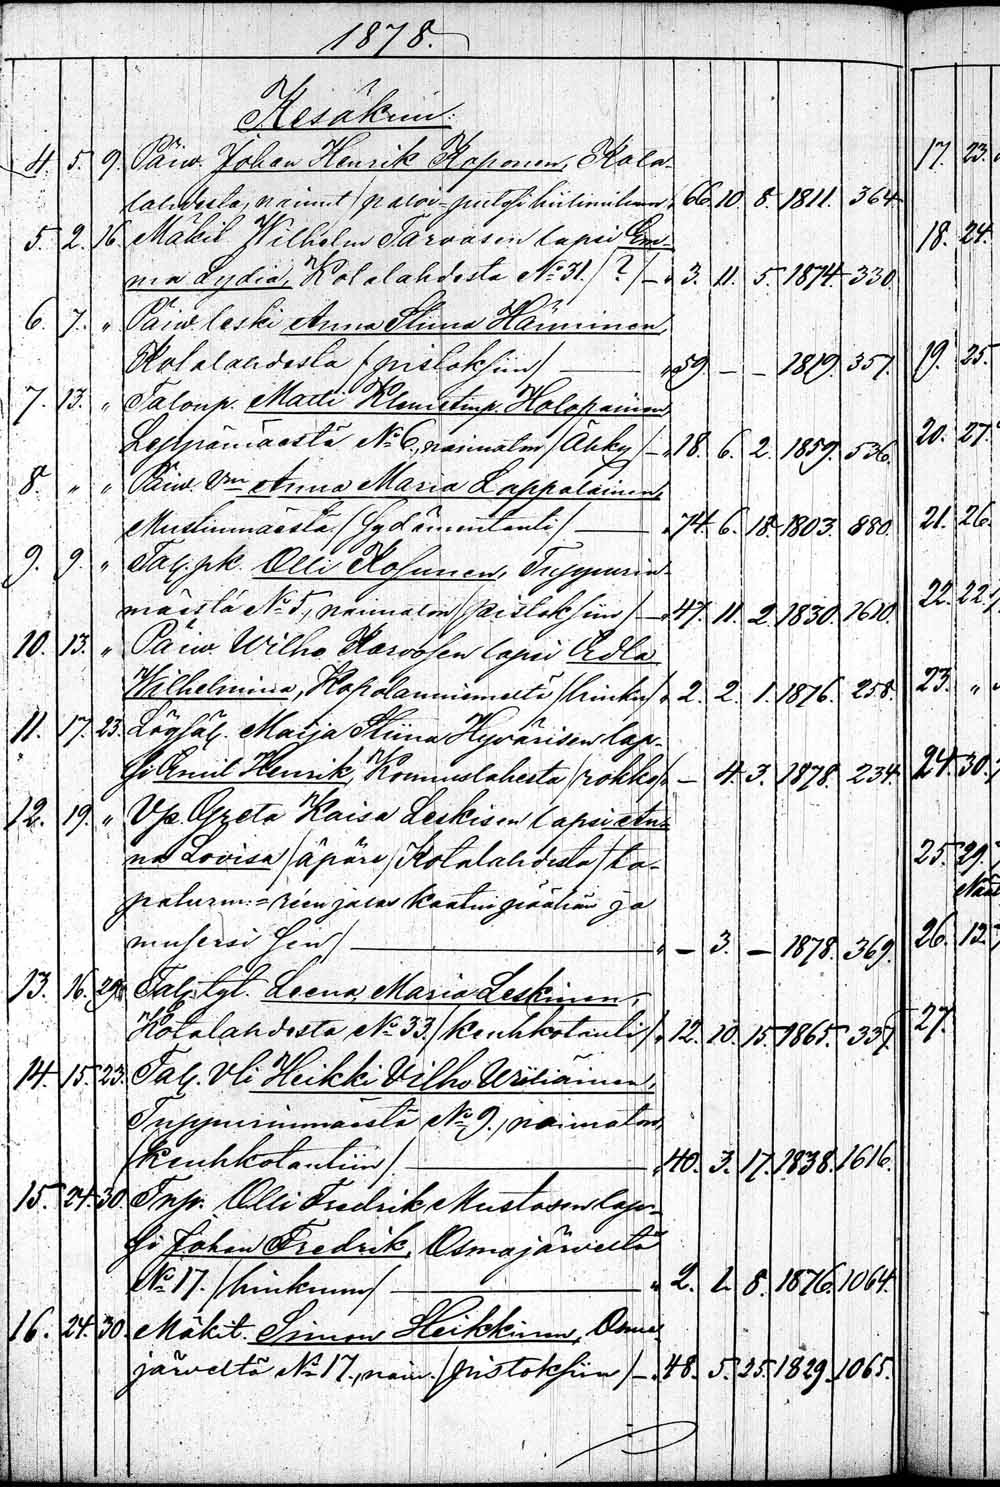 1878.
Kesäkuu.
4. 5. 9. Päiw. Johan Henrik Koponen, Kota-
lahdesta, nainut / 66. 10. 8. 1811. 364
5. 2. 16. Mäkit. Wilhelm Tarvasen lapsi Em-
ma Lydia, Kotalahdesta No 31. /?/ — " 3. 11. 5. 1874. 330
6. 7. " Päiw. leski Anna Stiina Hänninen,
Kotalahdesta / pistoksiin / — " 59. — — 1819. 357.
7. 13. " Taloup. Matti Klemetinp. Holopainen
Leppämäestä No 6., naimaton / Ähky / — " 18. 6. 2. 1859. 536.
8. " " Päiw. Vm Anna Maria Lappalainen,
Mustinmäestä / Sydämentauti / — " 74. 6. 18. 1803. 880.
9. 9. " Tal. pk. Olli Kosunen, Tuppurin-
mäestä No 5., naimaton / pistoksiin / — " 47. 11. 2. 1830. 1610.
10. 13. " Päiw. Wilho Karvosen lapsi Edla
Wilhelmina, Kopolanniemestä / hinku / " 2. 2. 1. 1876. 258.
11. 17. 23. Maija Stiina Hyvärisen lap-
si Emil Henrik, Konnuslahesta / rokko / — 4. 3. 1878. 234.
12. 19. " Vp. Greta Kaisa Leskisen lapsi An-
na Lovisa / äpäre / Kotalahdesta / ta-
paturm. = reen jalas kaatui päähän ja
musersi sen / — " — 3. — 1878. 369.
13. 16. Tal. tyt. Leena Maria Leskinen,
Kotalahdesta No 33. / keuhkotauti / " 12. 10. 15. 1865. 337.
14. 15. 23. Tal. Vli Heikki Vilho Wäliäinen,
Tuppurinmäestä No 9., naimaton,
/ keuhkotautiin / — " 40. 3. 17. 1838. 1616.
15. 24. 30. Tnp. Olli Fredrik Mustosen lap-
si Johan Fredrik, Osmajärveltä
No 17. / hinkuun / — " 2. 1. 8. 1876. 1064.
16. 24. 30. Mäkit. Simon Heikkinen, Osma-
järveltä No 17., nain. / pistoksiin / — " 48. 5. 25. 1829. 1065.
17. 23.
18. 24.
19. 25.
20. 27.
21. 26.
22. 22.
23. "
24. 30.
25. 29.
26. 12.
27.